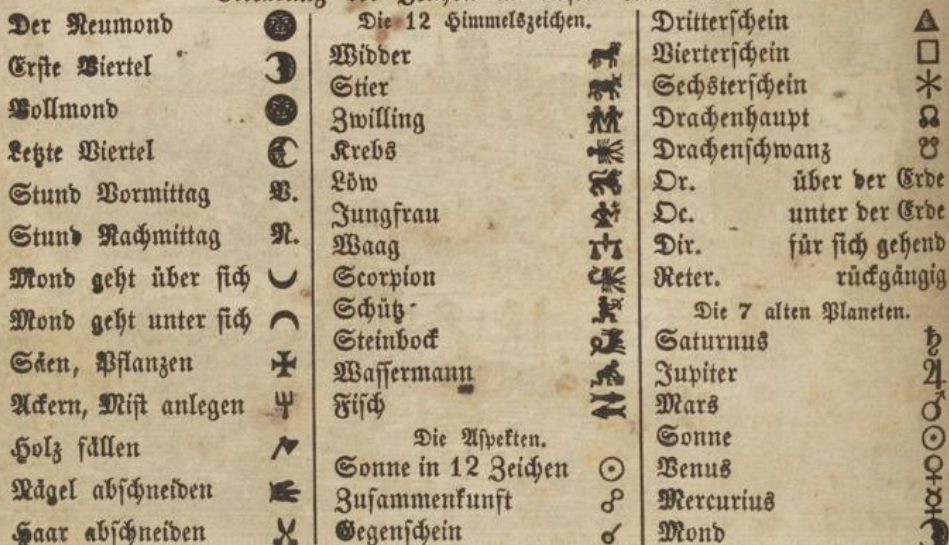 Der Neumond
Erste Viertel
Vollmond
Letzte Viertel
Stund Vormittag V.
Stund Nachmittag N.
Mond geht über sich
Mond geht unter sich
Säen, Pflanzen
Ackern, Mist anlegen
Holz fällen
Nägel abschneiden
Haar abschneiden
Die 12 Himmelszeichen.
Widder
Stier
Zwilling
Krebs
Löw
Jungfrau
Waag
Scorpion
Schütz
Steinbock
Wassermann
Fisch
Die Aspekten.
Sonne in 12 Zeichen ☉
Zusammenkunft ☍
Gegenschein ☌
Dritterschein
Vierterschein □
Sechsterschein
Drachenhaupt ☊
Drachenschwanz ☋
Or. über der Erde
Oc. unter der Erde
Dir. für sich gehend
Reter. rückgängig
Die 7 alten Planeten.
Saturnus ♄
Jupiter ♃
Mars ♂
Sonne ☉
Venus ♀
Mercurius ☿
Mond